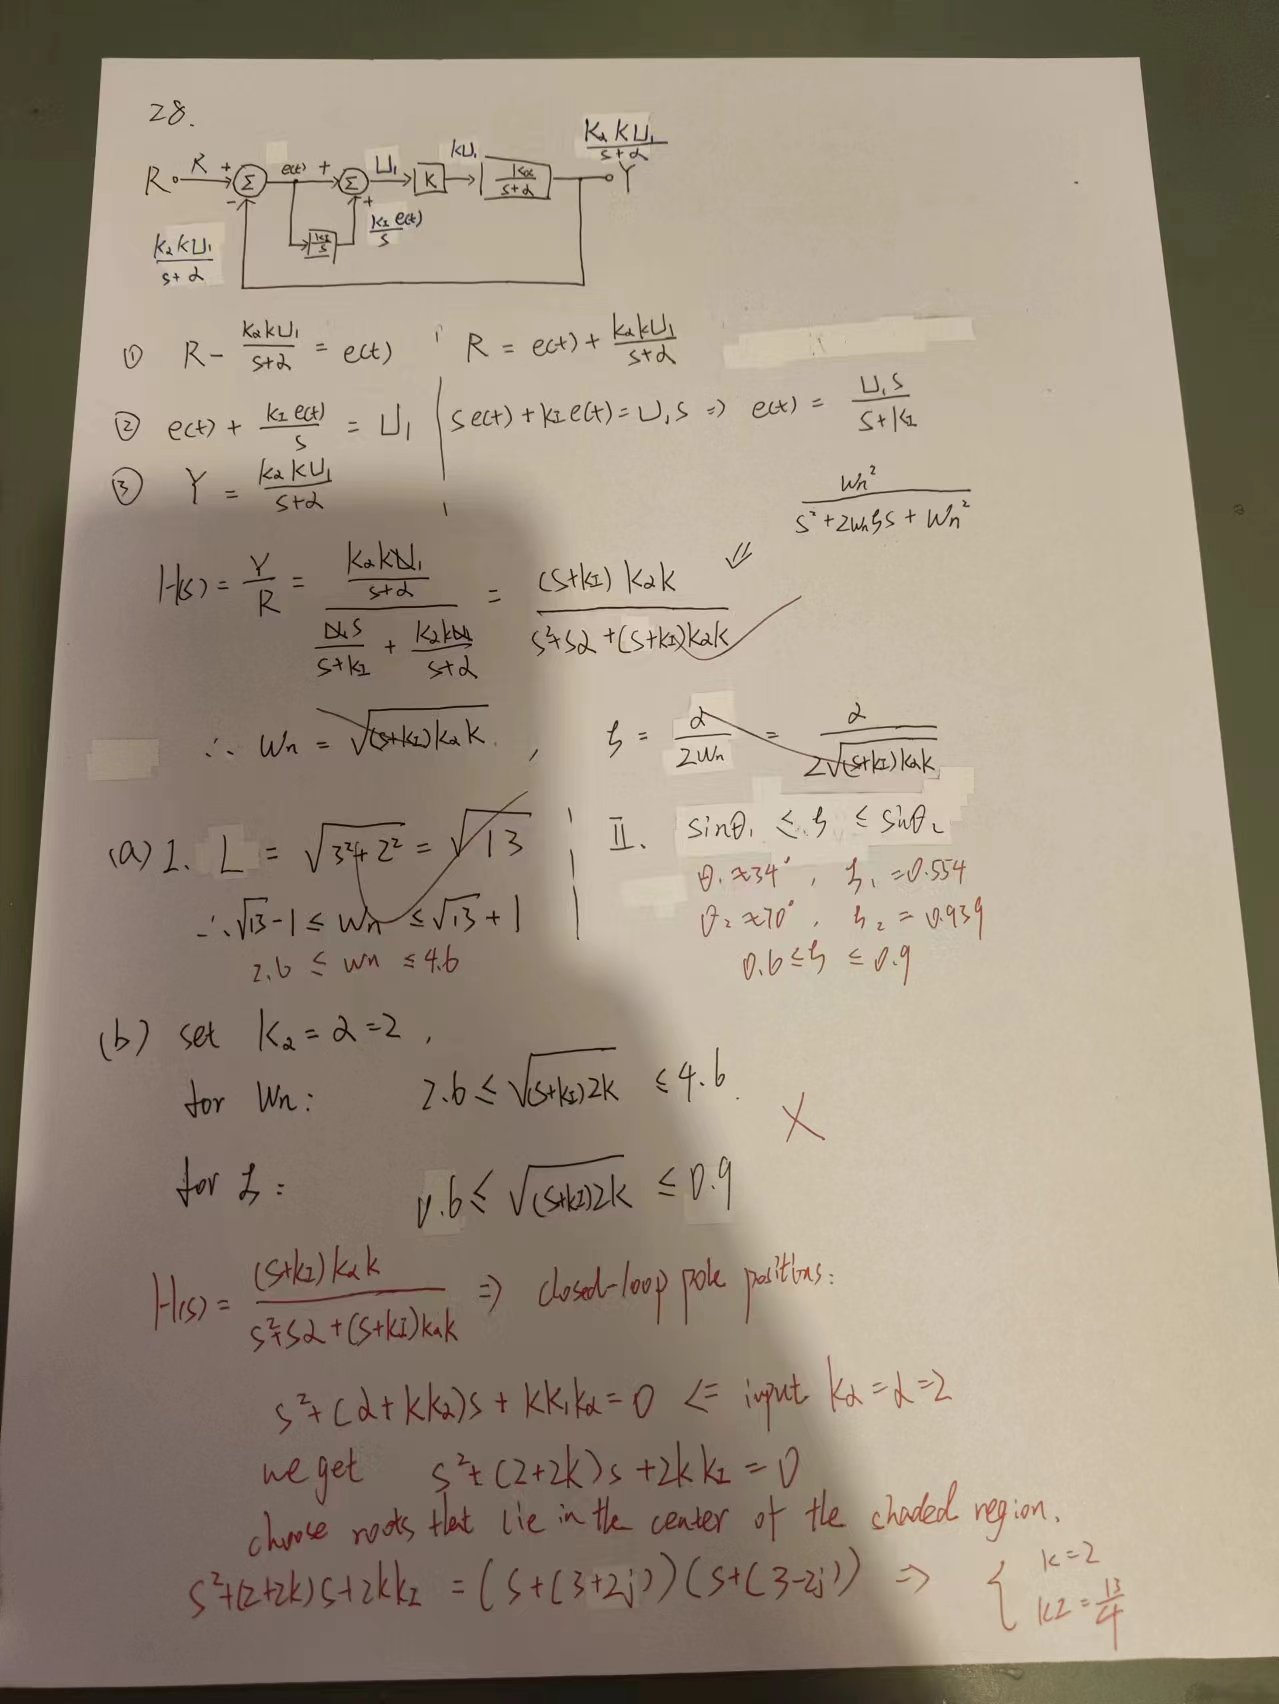 28.
R R + Σ e(t) + Σ U₁ K KU₁ kα/(s+α) Y
kα k U₁/(s+α)
- + kI/s kI e(t)/s
kα k U₁/(s+α)
① R - kα k U₁/(s+α) = e(t) R = e(t) + kα k U₁/(s+α)
② e(t) + kI e(t)/s = U₁ s e(t) + kI e(t) = U₁ s ⇒ e(t) = U₁ s/(s+kI)
③ Y = kα k U₁/(s+α)
wn²/(s²+2wnζs+wn²)
H(s) = Y/R = (kα k U₁/(s+α))/(U₁ s/(s+kI) + kα k U₁/(s+α)) = (s+kI) kα k/(s²+sα+(s+kI)kα k) ⇐
∴ wn = √((s+kI)kα k) , ζ = α/(2wn) = α/(2√((s+kI)kα k))
(a) I. L = √(3²+2²) = √13 II. sinθ₁ ≤ ζ ≤ sinθ₂
θ₁ ≈ 34° , ζ₁ = 0.554
∴ √13 - 1 ≤ wn ≤ √13 + 1 θ₂ ≈ 70° , ζ₂ = 0.939
2.6 ≤ wn ≤ 4.6 0.6 ≤ ζ ≤ 0.9
(b) set kα = α = 2 ,
for wn: 2.6 ≤ √((s+kI)2k) ≤ 4.6
for ζ: 0.6 ≤ √((s+kI)2k) ≤ 0.9
H(s) = (s+kI) kα k/(s²+sα+(s+kI)kα k) ⇒ closed-loop pole positions:
s²+(α+kkα)s + kkIkα = 0 <= input kα = α = 2
we get s²+(2+2k)s+2kkI = 0
choose roots that lie in the center of the shaded region.
s²+(2+2k)s+2kkI = (s+(3+2j))(s+(3-2j)) ⇒ { k=2
kI = 13/4